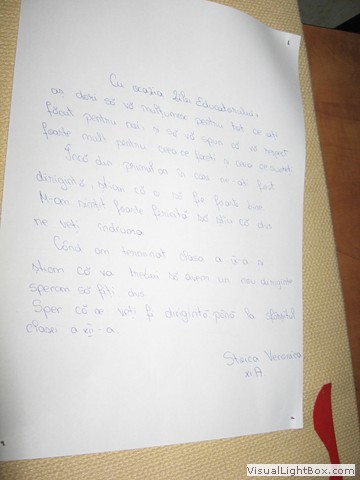 Cu ocazia Zilei Educatorului,
aș dori să vă mulțumesc pentru tot ce ați
făcut pentru noi, și să vă spun că vă respect
foarte mult pentru ceea ce faceți și ceea ce sunteți
Încă din primul an în care ne-ați fost
dirigintă, știam că o să fie foarte bine
M-am simțit foarte fericită să știu că dvs
ne veți îndruma
Când am terminat clasa a a
știam că va trebui să avem un nou diriginte
speram să fiți dvs.
Sper că ne veți fi dirigintă până la sfârșitul
clasei a XII-a.
Staica
XI A
VisualLightBox.com